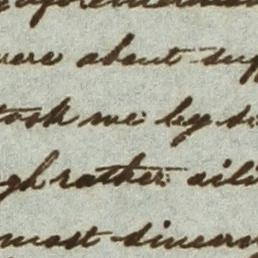 were about sup
took me by su
gh rather aili
most sincere